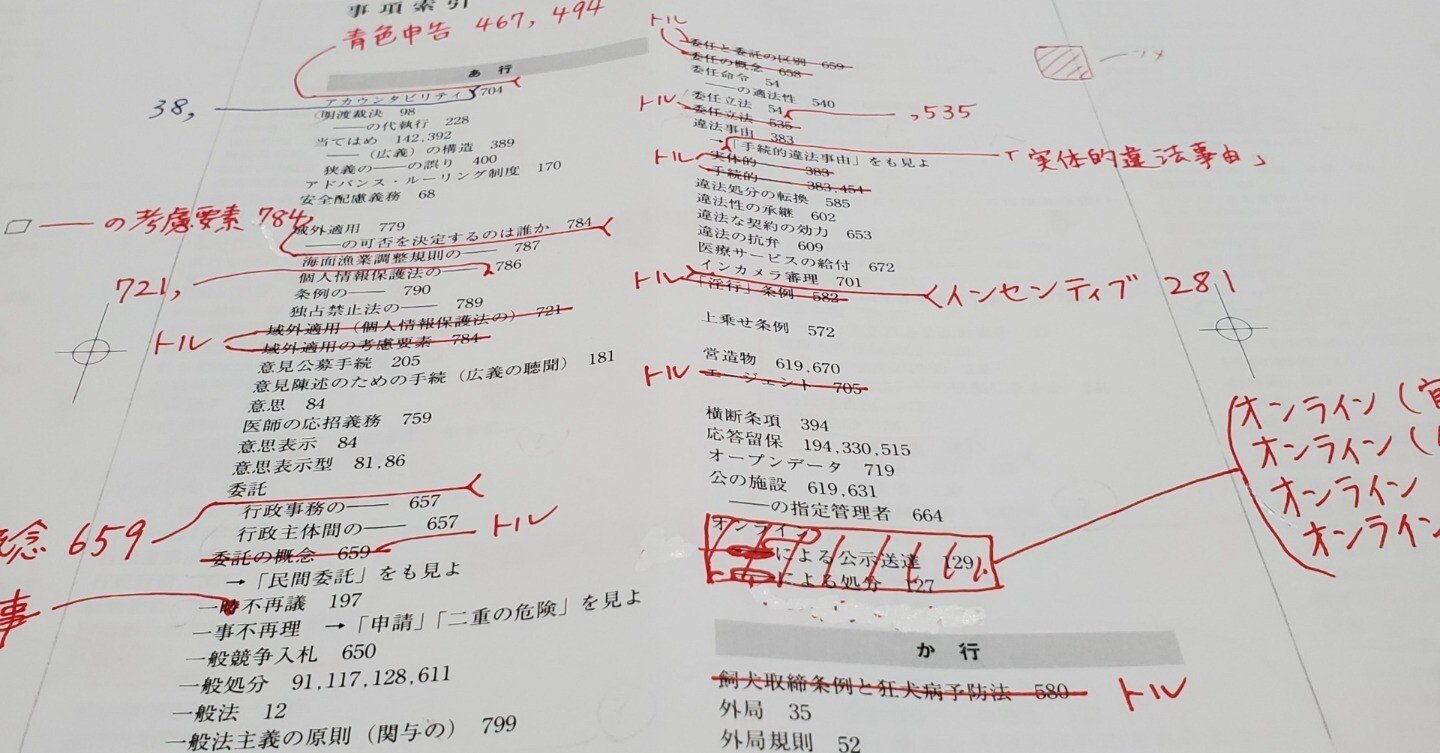 事項索引
青色申告 467, 494
あ 行
38,
アカウンタビリティ 704
明渡裁決 98
――の代執行 228
当てはめ 142,392
――（広義）の構造 389
狭義の――の誤り 400
アドバンス・ルーリング制度 170
安全配慮義務 68
□――の考慮要素 784
域外適用 779
――の可否を決定するのは誰か 784
海面漁業調整規則の―― 787
721,
個人情報保護法の―― 786
条例の―― 790
独占禁止法の―― 789
トル
域外適用（個人情報保護法の） 721
域外適用の考慮要素 784
意見公募手続 205
意見陳述のための手続（広義の聴聞） 181
意思 84
医師の応招義務 759
意思表示 84
意思表示型 81,86
委託
念 659
行政事務の―― 657
行政主体間の―― 657
トル
委託の概念 659
→「民間委託」をも見よ
事
一時不再議 197
一事不再理 →「申請」「二重の危険」を見よ
一般競争入札 650
一般処分 91,117,128,611
一般法 12
一般法主義の原則（関与の） 799
トル
委任と委託の区別 659
委任の概念 658
委任命令 54
――の適法性 540
トル
委任立法 54
,535
委任立法 535
違法事由 383
→「手続的違法事由」をも見よ
「実体的違法事由」
トル
実体的―― 383
手続的―― 383,454
違法処分の転換 585
違法性の承継 602
違法な契約の効力 653
違法の抗弁 609
医療サービスの給付 672
インカメラ審理 701
トル
「淫行」条例 582
インセンティブ 281
上乗せ条例 572
営造物 619,670
トル
エージェント 705
横断条項 394
応答留保 194,330,515
オープンデータ 719
公の施設 619,631
――の指定管理者 664
オンライン
による公示送達 129
による処分 127
オンライン（
オンライン（
オンライン
オンライン
か 行
飼犬取締条例と狂犬病予防法 580
トル
外局 35
外局規則 52